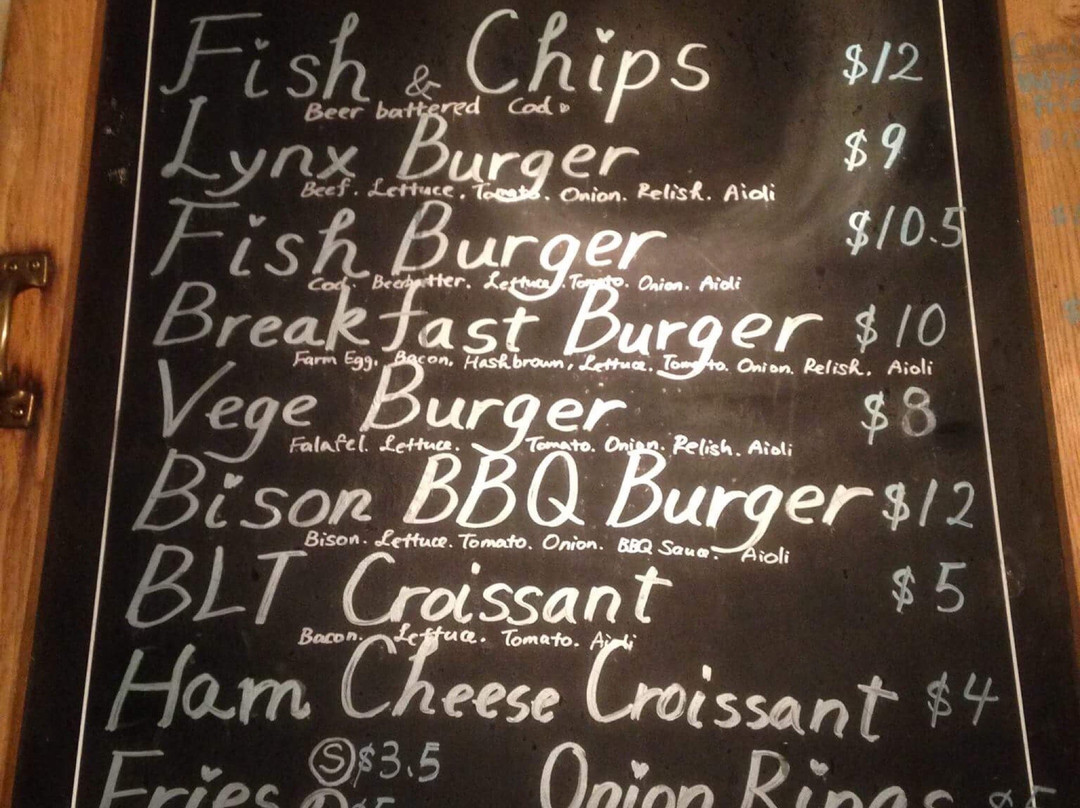 Fish & Chips $12
Beer battered Cod
Lynx Burger $9
Beef. Lettuce. Tomato. Onion. Relish. Aioli
Fish Burger $10.5
Cod. Beerbatter. Lettuce. Tomato. Onion. Aioli
Breakfast Burger $10
Farm Egg. Bacon. Hashbrown, Lettuce. Tomato. Onion. Relish. Aioli
Vege Burger $8
Falafel. Lettuce. Tomato. Onion. Relish. Aioli
Bison BBQ Burger $12
Bison. Lettuce. Tomato. Onion. BBQ Sauce. Aioli
BLT Croissant $5
Bacon. Lettuce. Tomato. Aioli
Ham Cheese Croissant $4
Fries Ⓢ $3.5 Onion Rings